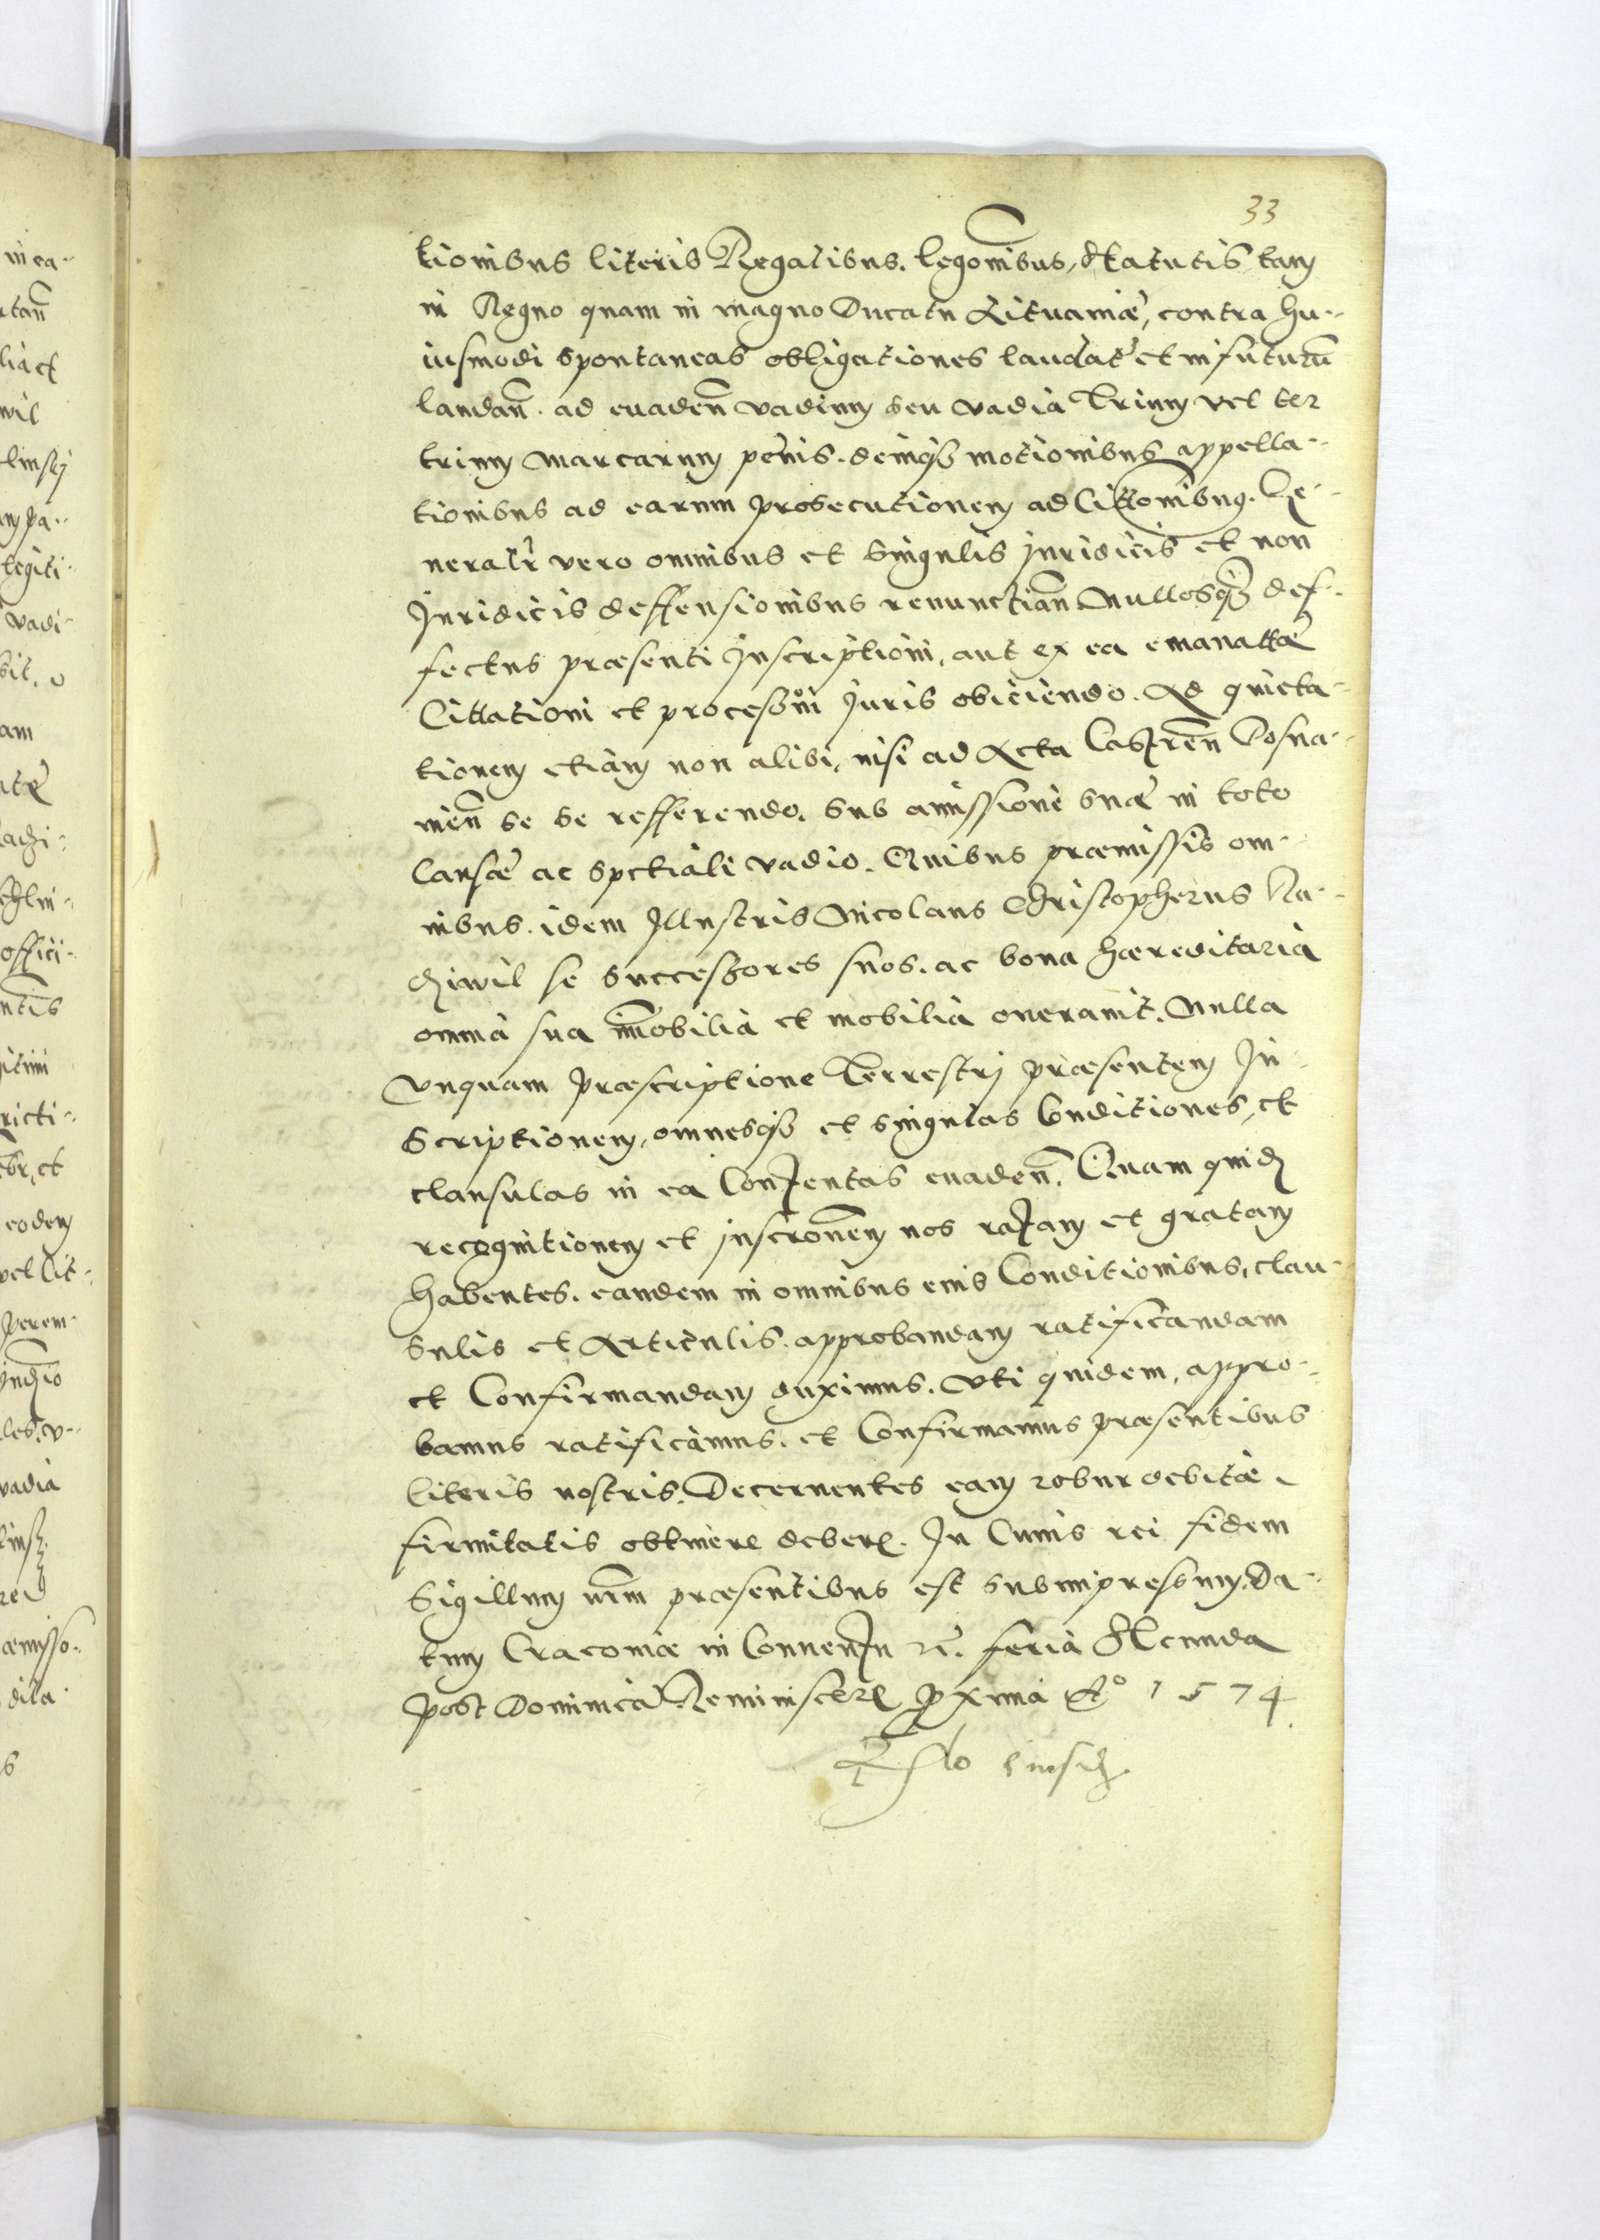 33
tionibus literis Regalibus. legōnibus, Statutis tam
in Regno quam in magno Ducatu Lituaniæ, contra hu-
iusmodi spontaneas obligationes laudat̃ et in futurū
laudañ. ad euadeñ vadium seu vadia trium vel ter
trium marcarum pœnis. deniqȝ motionibus appella-
tionibus ad earum prosecutionem ad Cittōnibus. Ge-
neralr̃ vero omnibus et singulis iuridicis et non
Juridicis deffensionibus renunctiañ Nullosqȝ def-
fectus præsenti Inscriptioni, aut ex ea emanattæ
Cittationi et processui Juris obiiciendo. Ad quieta-
tionem etiam non alibi, nisi ad Acta Castreñ Posna-
nieñ se se refferendo. sub amissione suæ in toto
Causæ ac spctiale vadio. Quibus præmissis om-
nibus. idem Illustris Nicolaus Christopherus Ra-
dziwil se successores suos. ac bona hæreditaria
omnia sua im̃obilia et mobilia onerauit. Nulla
vnquam præscriptione Terrestrj præsentem In-
scriptionem, omnesqȝ et singulas Conditiones, et
clausulas in ea Contentas euadeñ. Quam quid
recognitionem et inscrōnem nos ratam et gratam
habentes. eandem in omnibus eius Conditionibus, clau-
sulis et Articulis. approbandam ratificandam
et Confirmandam duximus. Vti quidem, appro-
bamus ratificamus. et Confirmamus præsentibus
literis nostris. Decernentes eam robur debitæ
firmitatis obtinere debere. In Cuius rei fidem
Sigillum nr̃m præsentibus est subimpressum. Da-
tum Cracouiæ in Conuentu ñ. feria Secunda
post Dominicā Reminiscere pxima Aº 1574